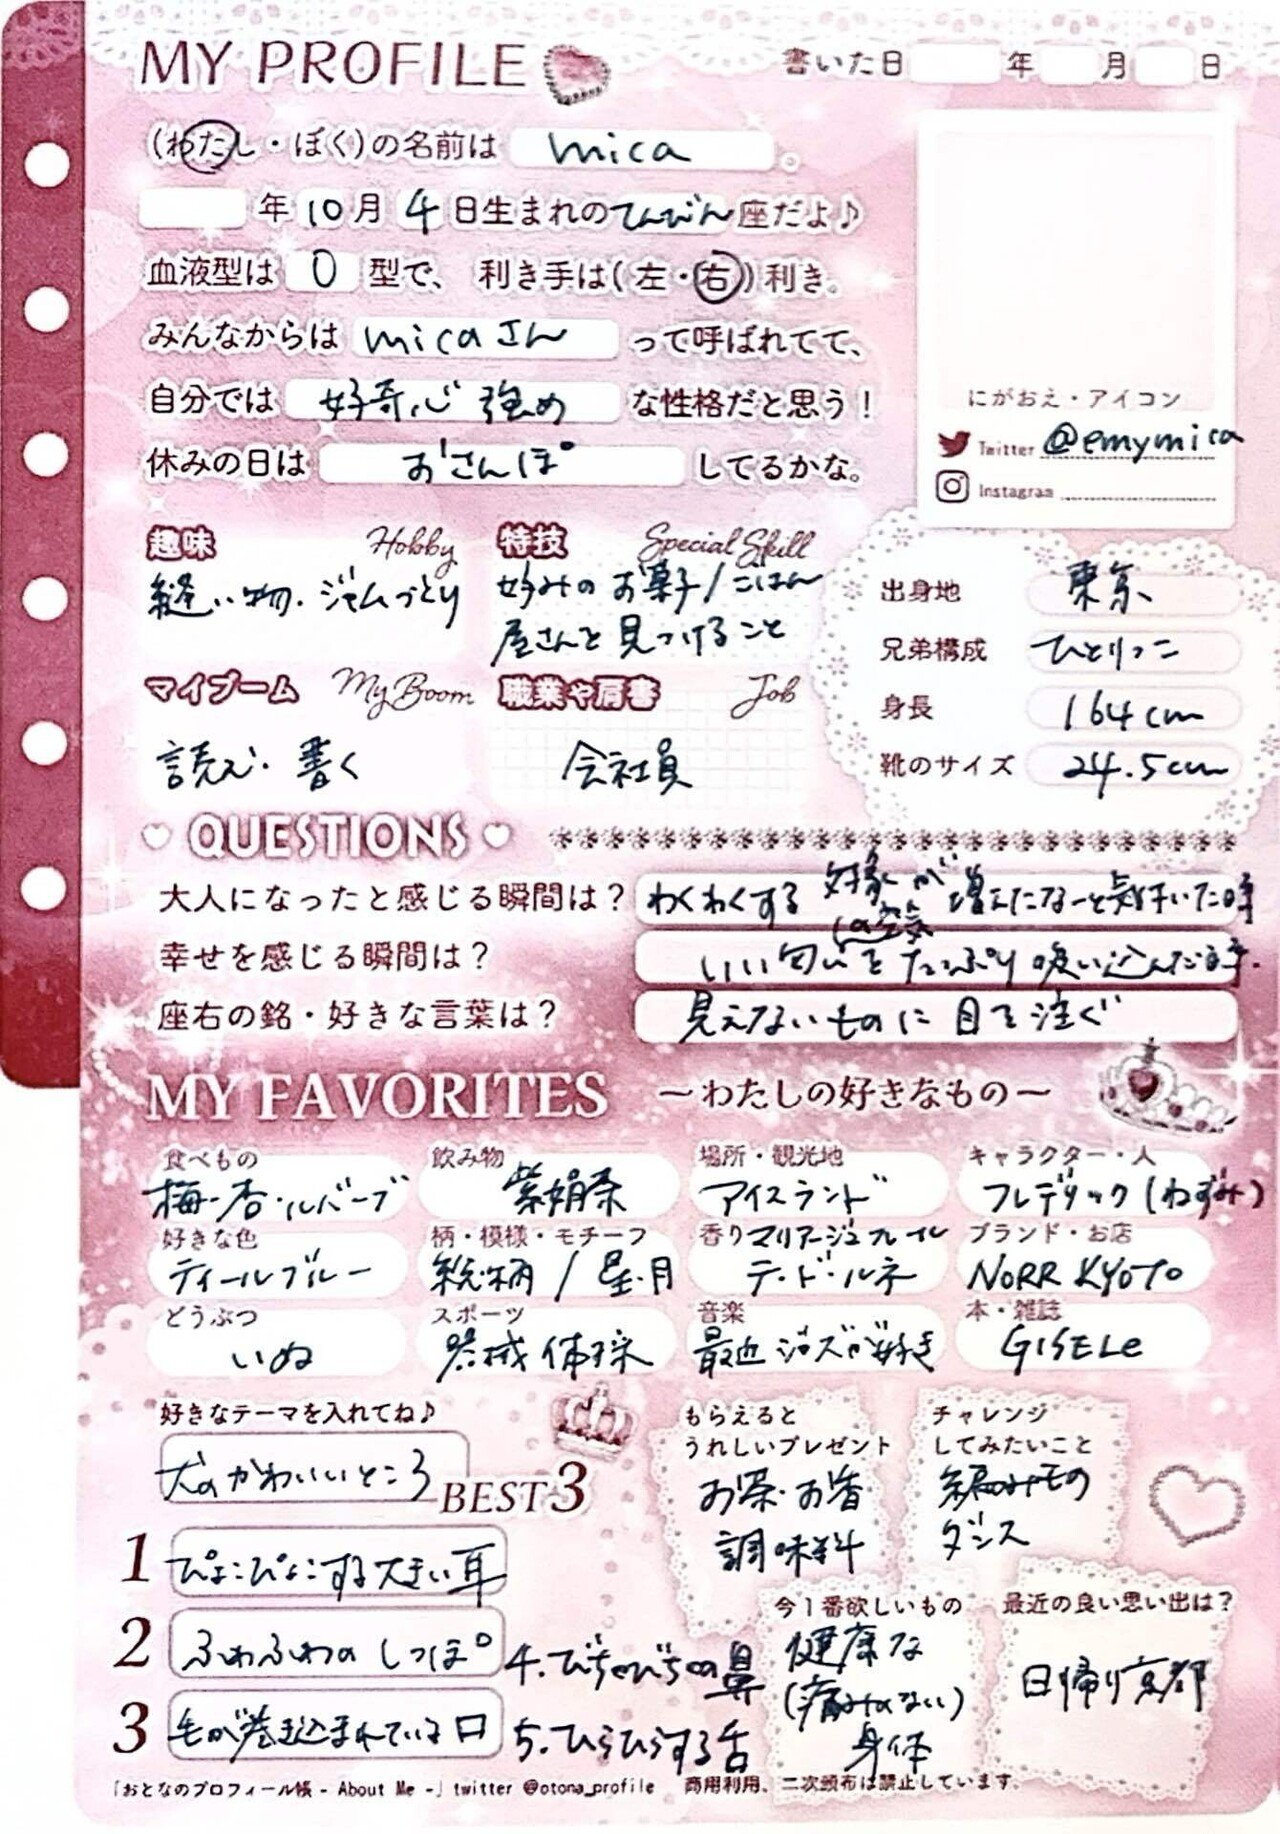 MY PROFILE
書いた日 年 月 日
(わたし・ぼく)の名前は mica 。
年 10月 4日生まれのてんびん座だよ♪
血液型は O 型で、利き手は(左・右)利き。
みんなからは micaさん って呼ばれてて、
自分では 好奇心強め な性格だと思う!
休みの日は おさんぽ してるかな。
にがおえ・アイコン
Twitter @emymica
Instagram
趣味 Hobby
縫い物・ジャムづくり
特技 Special Skill
好みのお菓子/ごはん
屋さんを見つけること
マイブーム My Boom
読む・書く
職業や肩書 Job
会社員
出身地 東京
兄弟構成 ひとりっこ
身長 164cm
靴のサイズ 24.5cm
QUESTIONS
大人になったと感じる瞬間は? わくわくする 対象が 増えたなーと気付いた時
幸せを感じる瞬間は? いい匂いの空気をたっぷり吸い込んだ時.
座右の銘・好きな言葉は? 見えないものに目を注ぐ
MY FAVORITES ～わたしの好きなもの～
食べもの
梅・杏・ルバーブ
飲み物
紫娟茶
場所・観光地
アイスランド
キャラクター・人
フレデリック(ねずみ)
好きな色
ティールブルー
柄・模様・モチーフ
総柄 / 星・月
香り マリアージュフレール
テ・ド・ルネ
ブランド・お店
NORR KYOTO
どうぶつ
いぬ
スポーツ
器械体操
音楽
最近ジャズが好き
本・雑誌
GISELe
好きなテーマを入れてね♪
犬のかわいいところ
BEST3
1 ぴょこぴょこする大きい耳
2 ふわふわのしっぽ
3 毛が巻き込まれている口
4.びちゃびちゃの鼻
5.ひらひらする舌
もらえると
うれしいプレゼント
お茶・お香
調味料
チャレンジ
してみたいこと
編みもの
ダンス
今1番欲しいもの
健康な
(痛みのない)
身体
最近の良い思い出は?
日帰り京都
「おとなのプロフィール帳 - About Me -」twitter @otona_profile 商用利用、二次頒布は禁止しています。